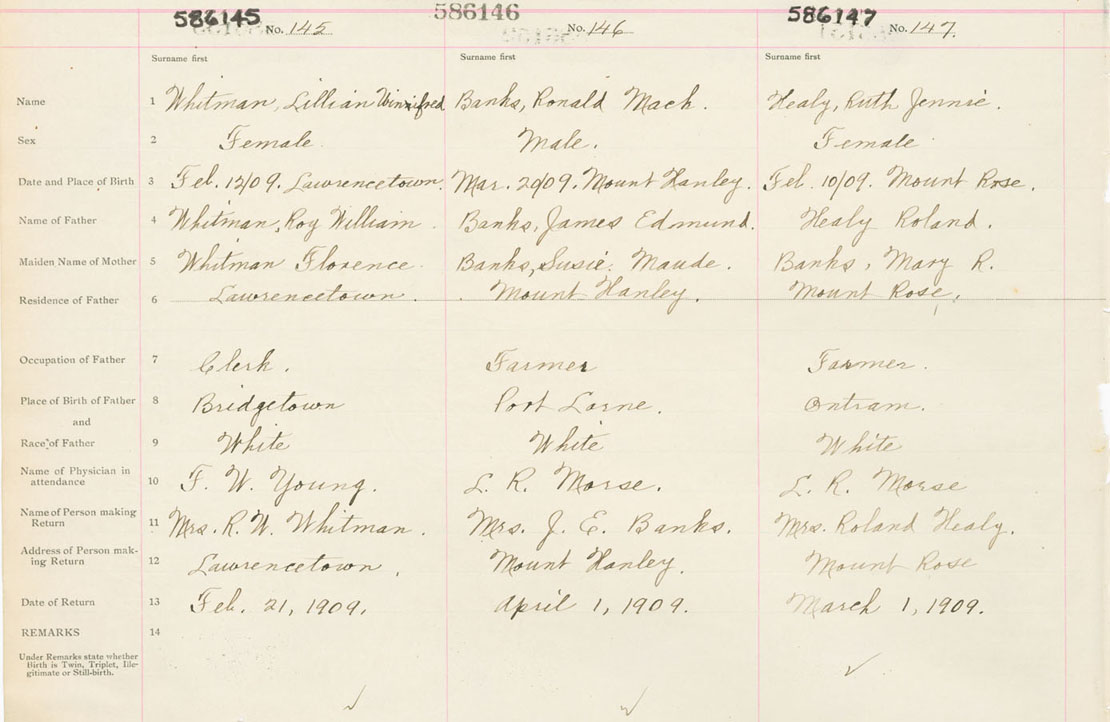 586145 No. 145 586146 No. 146 586147 No. 147.
Surname first Surname first Surname first
Name 1 Whitman, Lillian Winnifred Banks, Ronald Mack. Healy, Ruth Jennie.
Sex 2 Female. Male. Female
Date and Place of Birth 3 Feb. 12/09. Lawrencetown. Mar. 20/09. Mount Hanley. Feb. 10/09. Mount Rose.
Name of Father 4 Whitman, Roy William. Banks, James Edmund. Healy Roland.
Maiden Name of Mother 5 Whitman Florence. Banks, Susie Maude. Banks, Mary R.
Residence of Father 6 Lawrencetown. Mount Hanley. Mount Rose.
Occupation of Father 7 Clerk. Farmer Farmer.
Place of Birth of Father 8 Bridgetown Port Lorne. Outram.
and
Race of Father 9 White White White
Name of Physician in
attendance 10 F. W. Young. L. R. Morse. L. R. Morse
Name of Person making
Return 11 Mrs. R. W. Whitman. Mrs. J. E. Banks. Mrs. Roland Healy.
Address of Person mak-
ing Return 12 Lawrencetown. Mount Hanley. Mount Rose
Date of Return 13 Feb. 21, 1909. April 1, 1909. March 1, 1909.
REMARKS 14
Under Remarks state whether
Birth is Twin, Triplet, Ille-
gitimate or Still-birth.